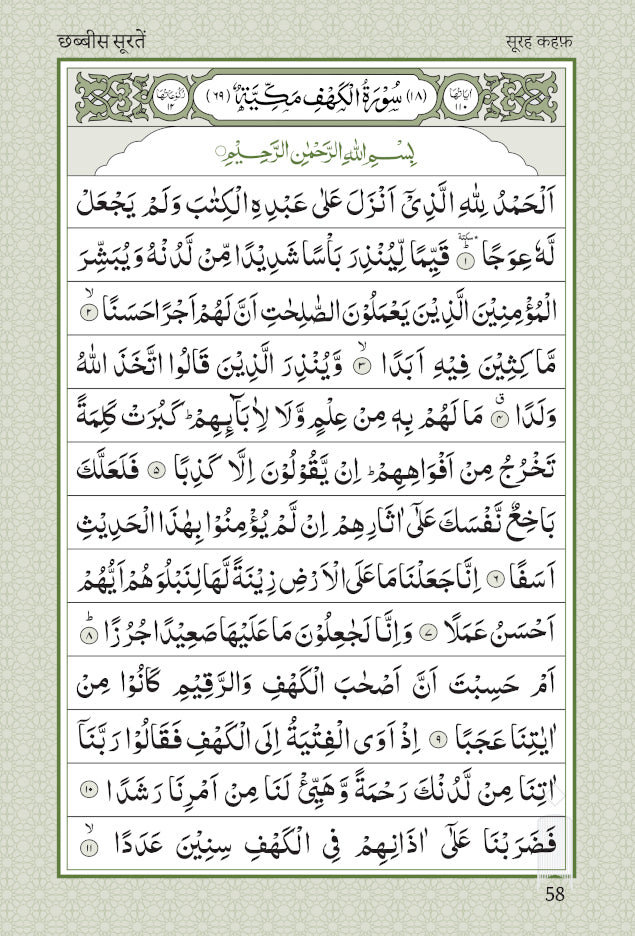 छब्बीस सूरतें
सूरह कहफ़
اٰیَاتُهَا ١١٠
﴿١٨﴾ سُوْرَةُ الْكَهْفِ مَكِّیَّةٌ ﴿٦٩﴾
رُكُوْعَاتُهَا ١٢
بِسْمِ اللّٰهِ الرَّحْمٰنِ الرَّحِیْمِ
اَلْحَمْدُ لِلّٰهِ الَّذِیْۤ اَنْزَلَ عَلٰی عَبْدِهِ الْكِتٰبَ وَلَمْ یَجْعَلْ
لَّهٗ عِوَجًا ١ؕ سكتة قَیِّمًا لِّیُنْذِرَ بَاْسًا شَدِیْدًا مِّنْ لَّدُنْهُ وَیُبَشِّرَ
الْمُؤْمِنِیْنَ الَّذِیْنَ یَعْمَلُوْنَ الصّٰلِحٰتِ اَنَّ لَهُمْ اَجْرًا حَسَنًا ٢ۙ
مَّاكِثِیْنَ فِیْهِ اَبَدًا ٣ۙ وَّیُنْذِرَ الَّذِیْنَ قَالُوا اتَّخَذَ اللّٰهُ
وَلَدًا ٤ۗ مَا لَهُمْ بِهٖ مِنْ عِلْمٍ وَّلَا لِاٰبَآىِٕهِمْ ؕ كَبُرَتْ كَلِمَةً
تَخْرُجُ مِنْ اَفْوَاهِهِمْ ؕ اِنْ یَّقُوْلُوْنَ اِلَّا كَذِبًا ٥ فَلَعَلَّكَ
بَاخِعٌ نَّفْسَكَ عَلٰۤی اٰثَارِهِمْ اِنْ لَّمْ یُؤْمِنُوْا بِهٰذَا الْحَدِیْثِ
اَسَفًا ٦ اِنَّا جَعَلْنَا مَا عَلَی الْاَرْضِ زِیْنَةً لَّهَا لِنَبْلُوَهُمْ اَیُّهُمْ
اَحْسَنُ عَمَلًا ٧ وَاِنَّا لَجٰعِلُوْنَ مَا عَلَیْهَا صَعِیْدًا جُرُزًا ٨ؕ
اَمْ حَسِبْتَ اَنَّ اَصْحٰبَ الْكَهْفِ وَالرَّقِیْمِ كَانُوْا مِنْ
اٰیٰتِنَا عَجَبًا ٩ اِذْ اَوَی الْفِتْیَةُ اِلَی الْكَهْفِ فَقَالُوْا رَبَّنَاۤ
اٰتِنَا مِنْ لَّدُنْكَ رَحْمَةً وَّهَیِّئْ لَنَا مِنْ اَمْرِنَا رَشَدًا ١٠
فَضَرَبْنَا عَلٰۤی اٰذَانِهِمْ فِی الْكَهْفِ سِنِیْنَ عَدَدًا ١١ۙ
58